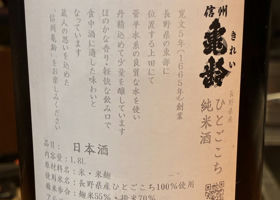 信州
亀齢
きれい
長野県産
ひとごこち
純米酒
寛文5年(1665年)創業
長野県の東部に
位置する上田にて
菅平水系の良質な水を使い
丹精込めて少量を醸しています
ほのかな香り・軽快な飲み口で
食中酒に適した味わいと
なっています
蔵人の思いを込めた
「信州亀齢」をお楽しみください
日本酒
1.8L
米・米麹
長野県産ひとごこち100%使用
麹米55%・掛米70%